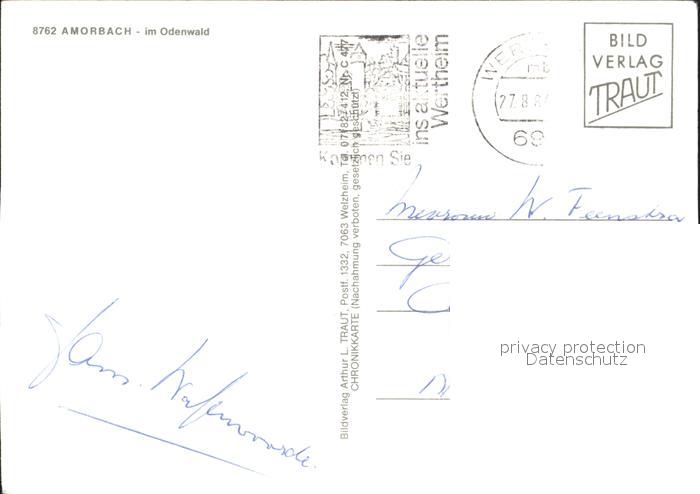 8762 AMORBACH - im Odenwald
Kommen Sie
ins aktuelle
Wertheim
27.8.8
69
BILD
VERLAG
TRAUT
Bildverlag Arthur L. TRAUT, Postf. 1332, 7063 Welzheim, Tel. 07182/7412, Nr. C 477
CHRONIKKARTE (Nachahmung verboten, gesetzlich geschützt)
Mevrouw W. Feenstra
Ge
privacy protection
Datenschutz
Hans